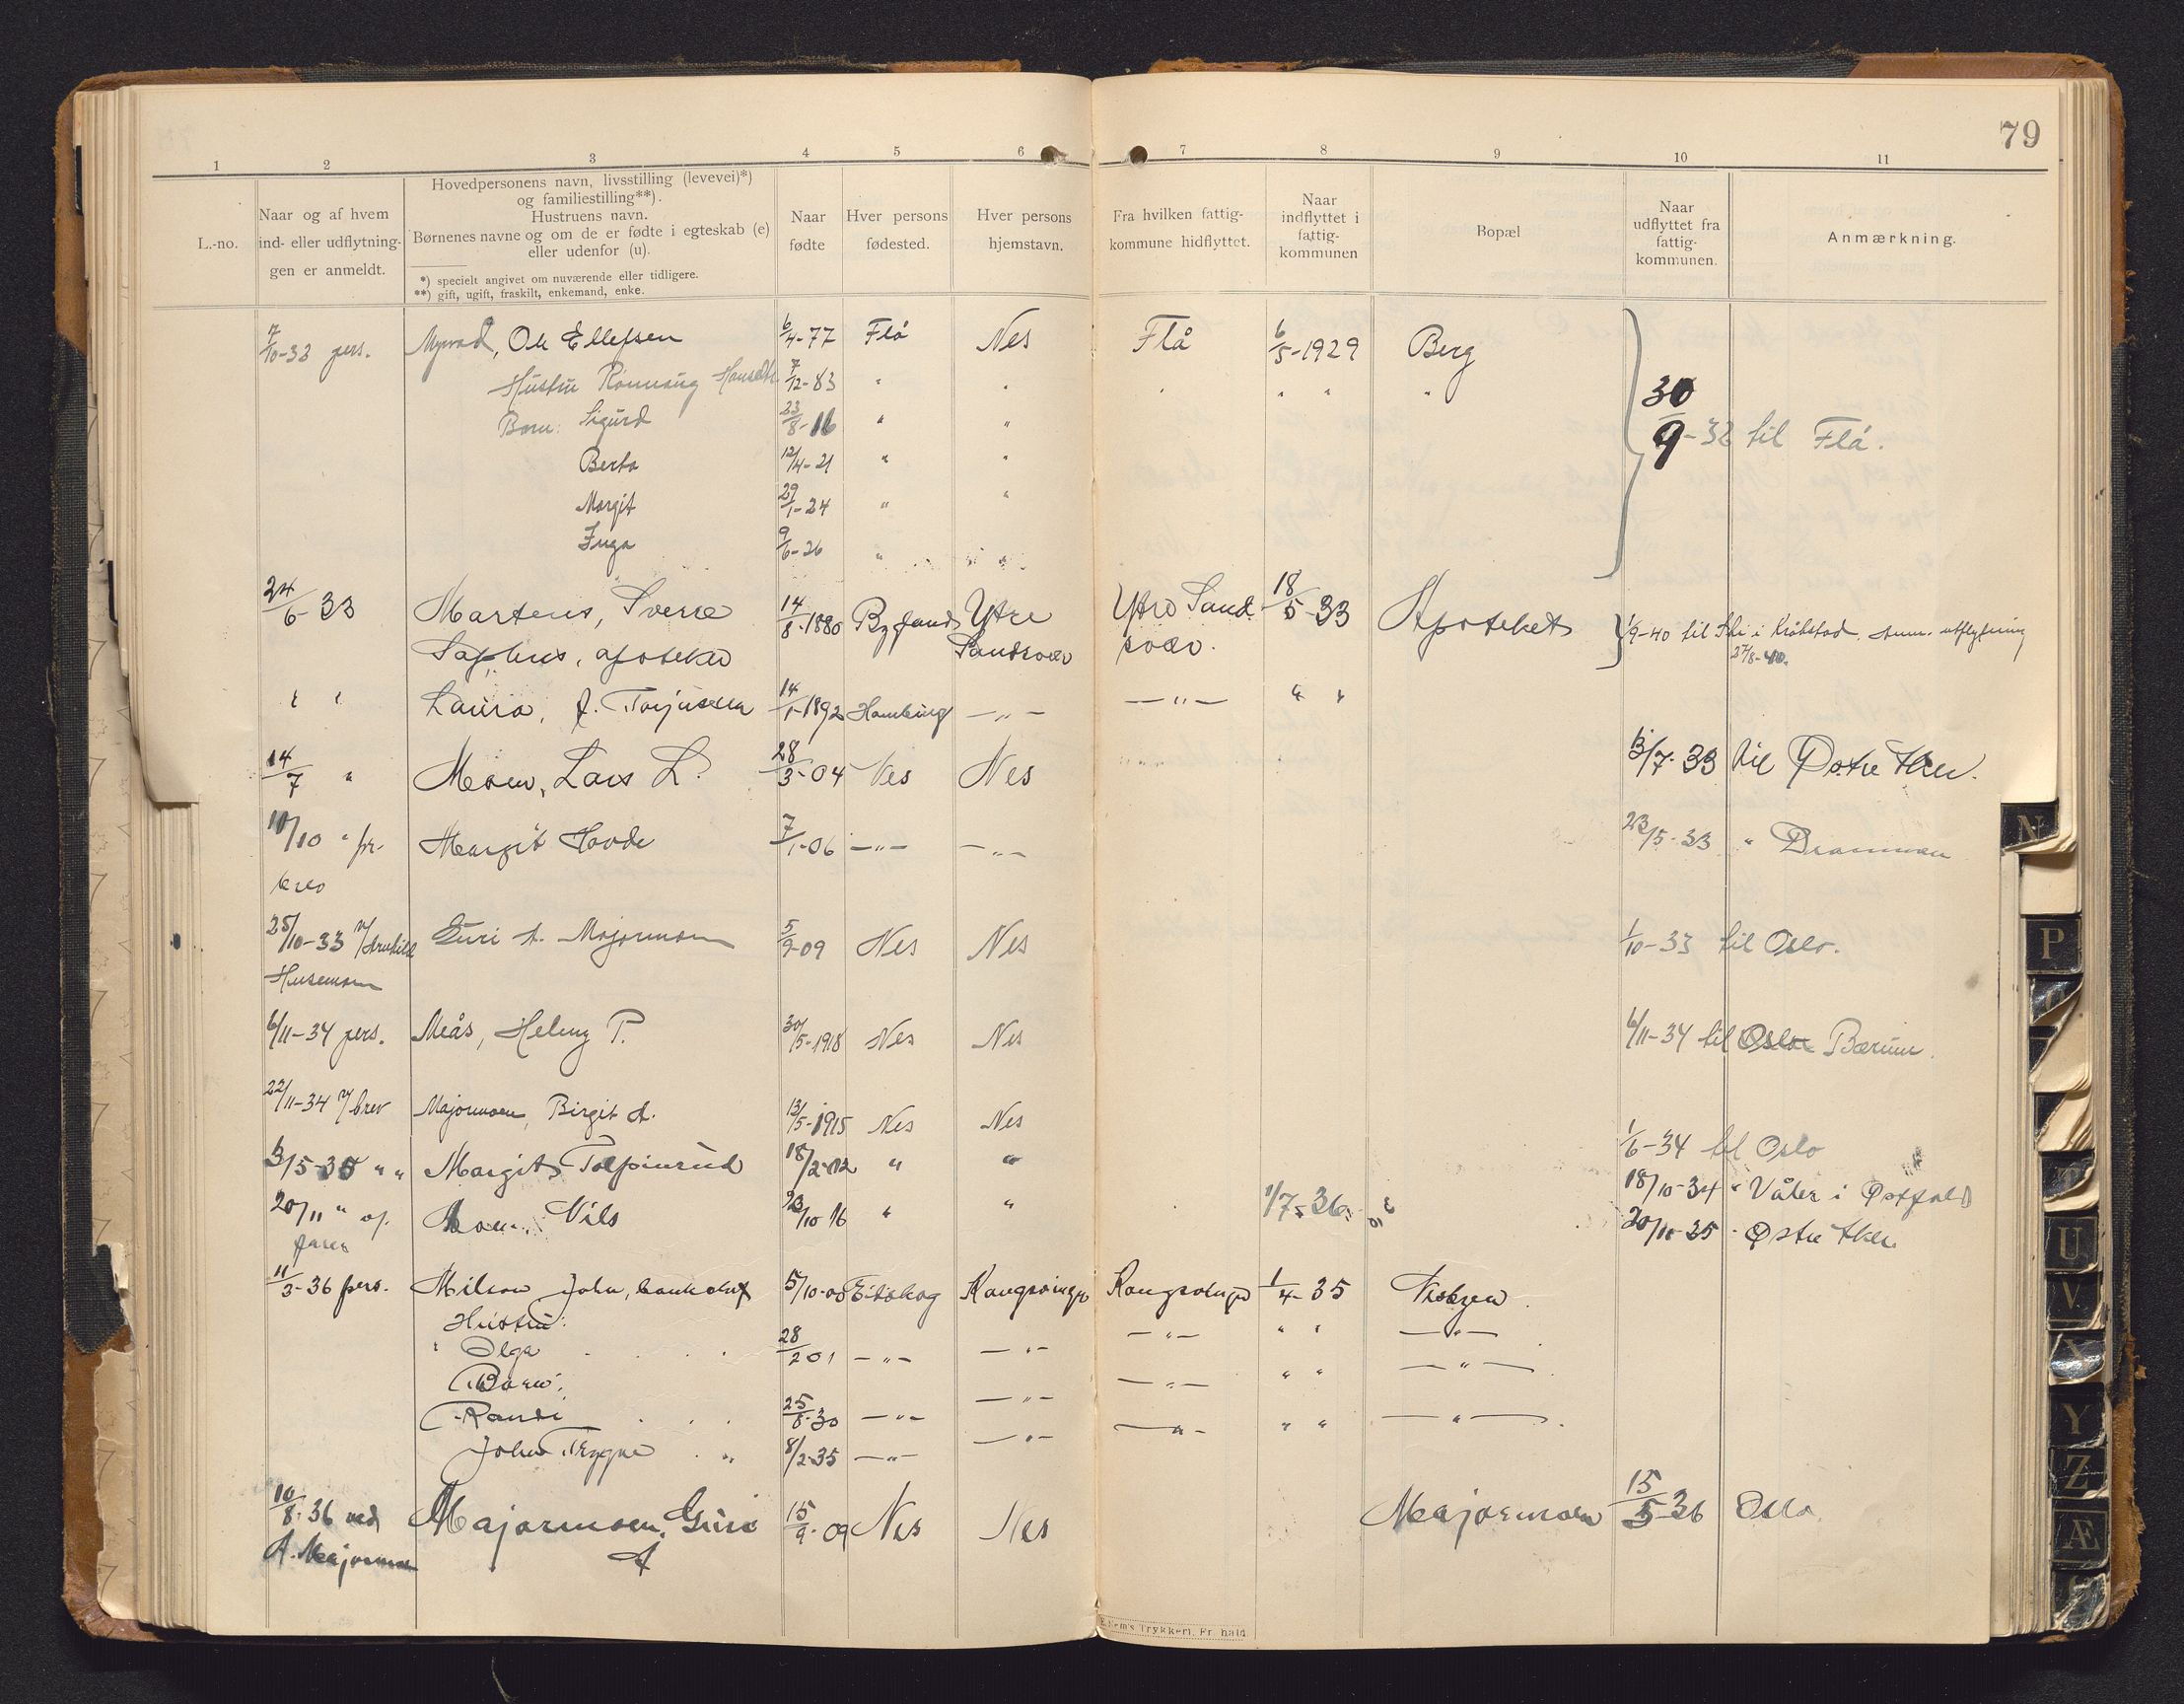 79
1 2 3 4 5 6 7 8 9 10 11
L.-no.
Naar og af hvem
ind- eller udflytnin-
gen er anmeldt.
Hovedpersonens navn, livsstilling (levevei)*)
og familiestilling**).
Hustruens navn.
Børnenes navne og om de er fødte i egteskab (e)
eller udenfor (u).
*) specielt angivet om nuværende eller tidligere.
**) gift, ugift, fraskilt, enkemand, enke.
Naar
fødte
Hver persons
fødested.
Hver persons
hjemstavn.
Fra hvilken fattig-
kommune hidflyttet.
Naar
indflyttet i
fattig-
kommunen
Bopæl
Naar
udflyttet fra
fattig-
kommunen.
Anmærkning.
7/10-32 pers. Ole Ellefsen 6/4-77 Flå Nes Flå 6/5-1929 Berg
Hustru Rønnaug 7/12-83 " " " " " "
Barn: Sigurd 23/8-16 " " 30/9-32 til Flå.
Berta 12/4-21 " "
Margit 29/1-24 " "
Inga 9/6-26 " "
24/6-33 Martens, Sverre 14/8-1880 Bygland Ytre Ytre Sand- 18/5-33 Apoteket 1/9-40 til Ski i Kråkstad, anm. utflytning
Sophus, apoteker Sandsvær svær. 27/8-40.
" " Laura, f. Torjussen 14/1-1892 Hamburg —"— —"— " "
14/7 " Moen, Lars L. 28/3-04 Nes Nes 13/7-33 til Østre Aker.
10/10 " pr. Margit Hovde 7/1-06 —"— —"— 23/5-33 " Drammen
brev
25/10-33 v/ Guri A. Majormoen 5/9-09 Nes Nes 1/10-33 til Oslo.
Husemoen
6/11-34 pers. Meås, Helmy P. 30/5-1918 Nes Nes 6/11-34 til Oslo Bærum.
22/11-34 v/ brev Majormoen, Birgit A. 13/5-1915 Nes Nes 1/6-34 til Oslo
3/5-35 " " Margit Tolpinrud 18/2-02 " " 18/10-34 " Våler i Østfold
20/11 " af Moen, Nils 23/10 16 " " 1/7-36. 20/11-35 - Østre Aker
faren
11/3-36 pers. John, 5/10-00 Eidskog Kongsvinger Kongsvinger 1/4-35 Nesbyen.
Hustru:
" Olga 28/2 01 —"— —"— —"— " " —"—
Barn: —"— " " —"—
Randi 25/8-30 —"— —"—
John Trygve " 8/2-35 —"— —"— —"— " " —"—
10/8-36 ved Majormoen, Guri 15/9-09 Nes Nes Majormoen 15/5-36 Oslo.
A. Majormoen A
Trykkeri, Fr.hald
N
P
U
V
X
Y
Z
Æ